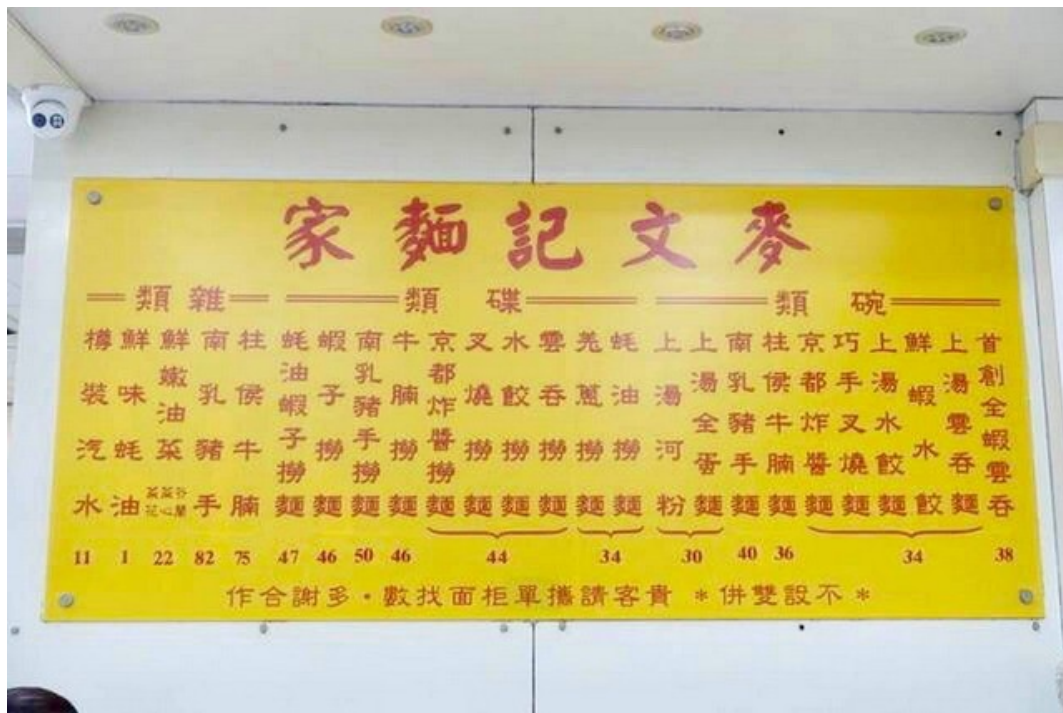 麥文記麵家
碗類
首創全蝦雲吞 38
上湯雲吞麵
鮮蝦水餃
上湯水餃麵
巧手叉燒麵
京都炸醬麵
34
柱侯牛腩麵 36
南乳豬手麵 40
上湯全蛋麵
上湯河粉
30
碟類
蚝油撈麵
羌蔥撈麵
34
雲吞撈麵
水餃撈麵
叉燒撈麵
京都炸醬撈麵
44
牛腩撈麵 46
南乳豬手撈麵 50
蝦子撈麵 46
蚝油蝦子撈麵 47
雜類
柱侯牛腩 75
南乳豬手 82
鮮嫩油菜 菜心 22
鮮味蚝油 1
樽裝汽水 11
*不設雙併* 貴客請攜單柜面找數・多謝合作